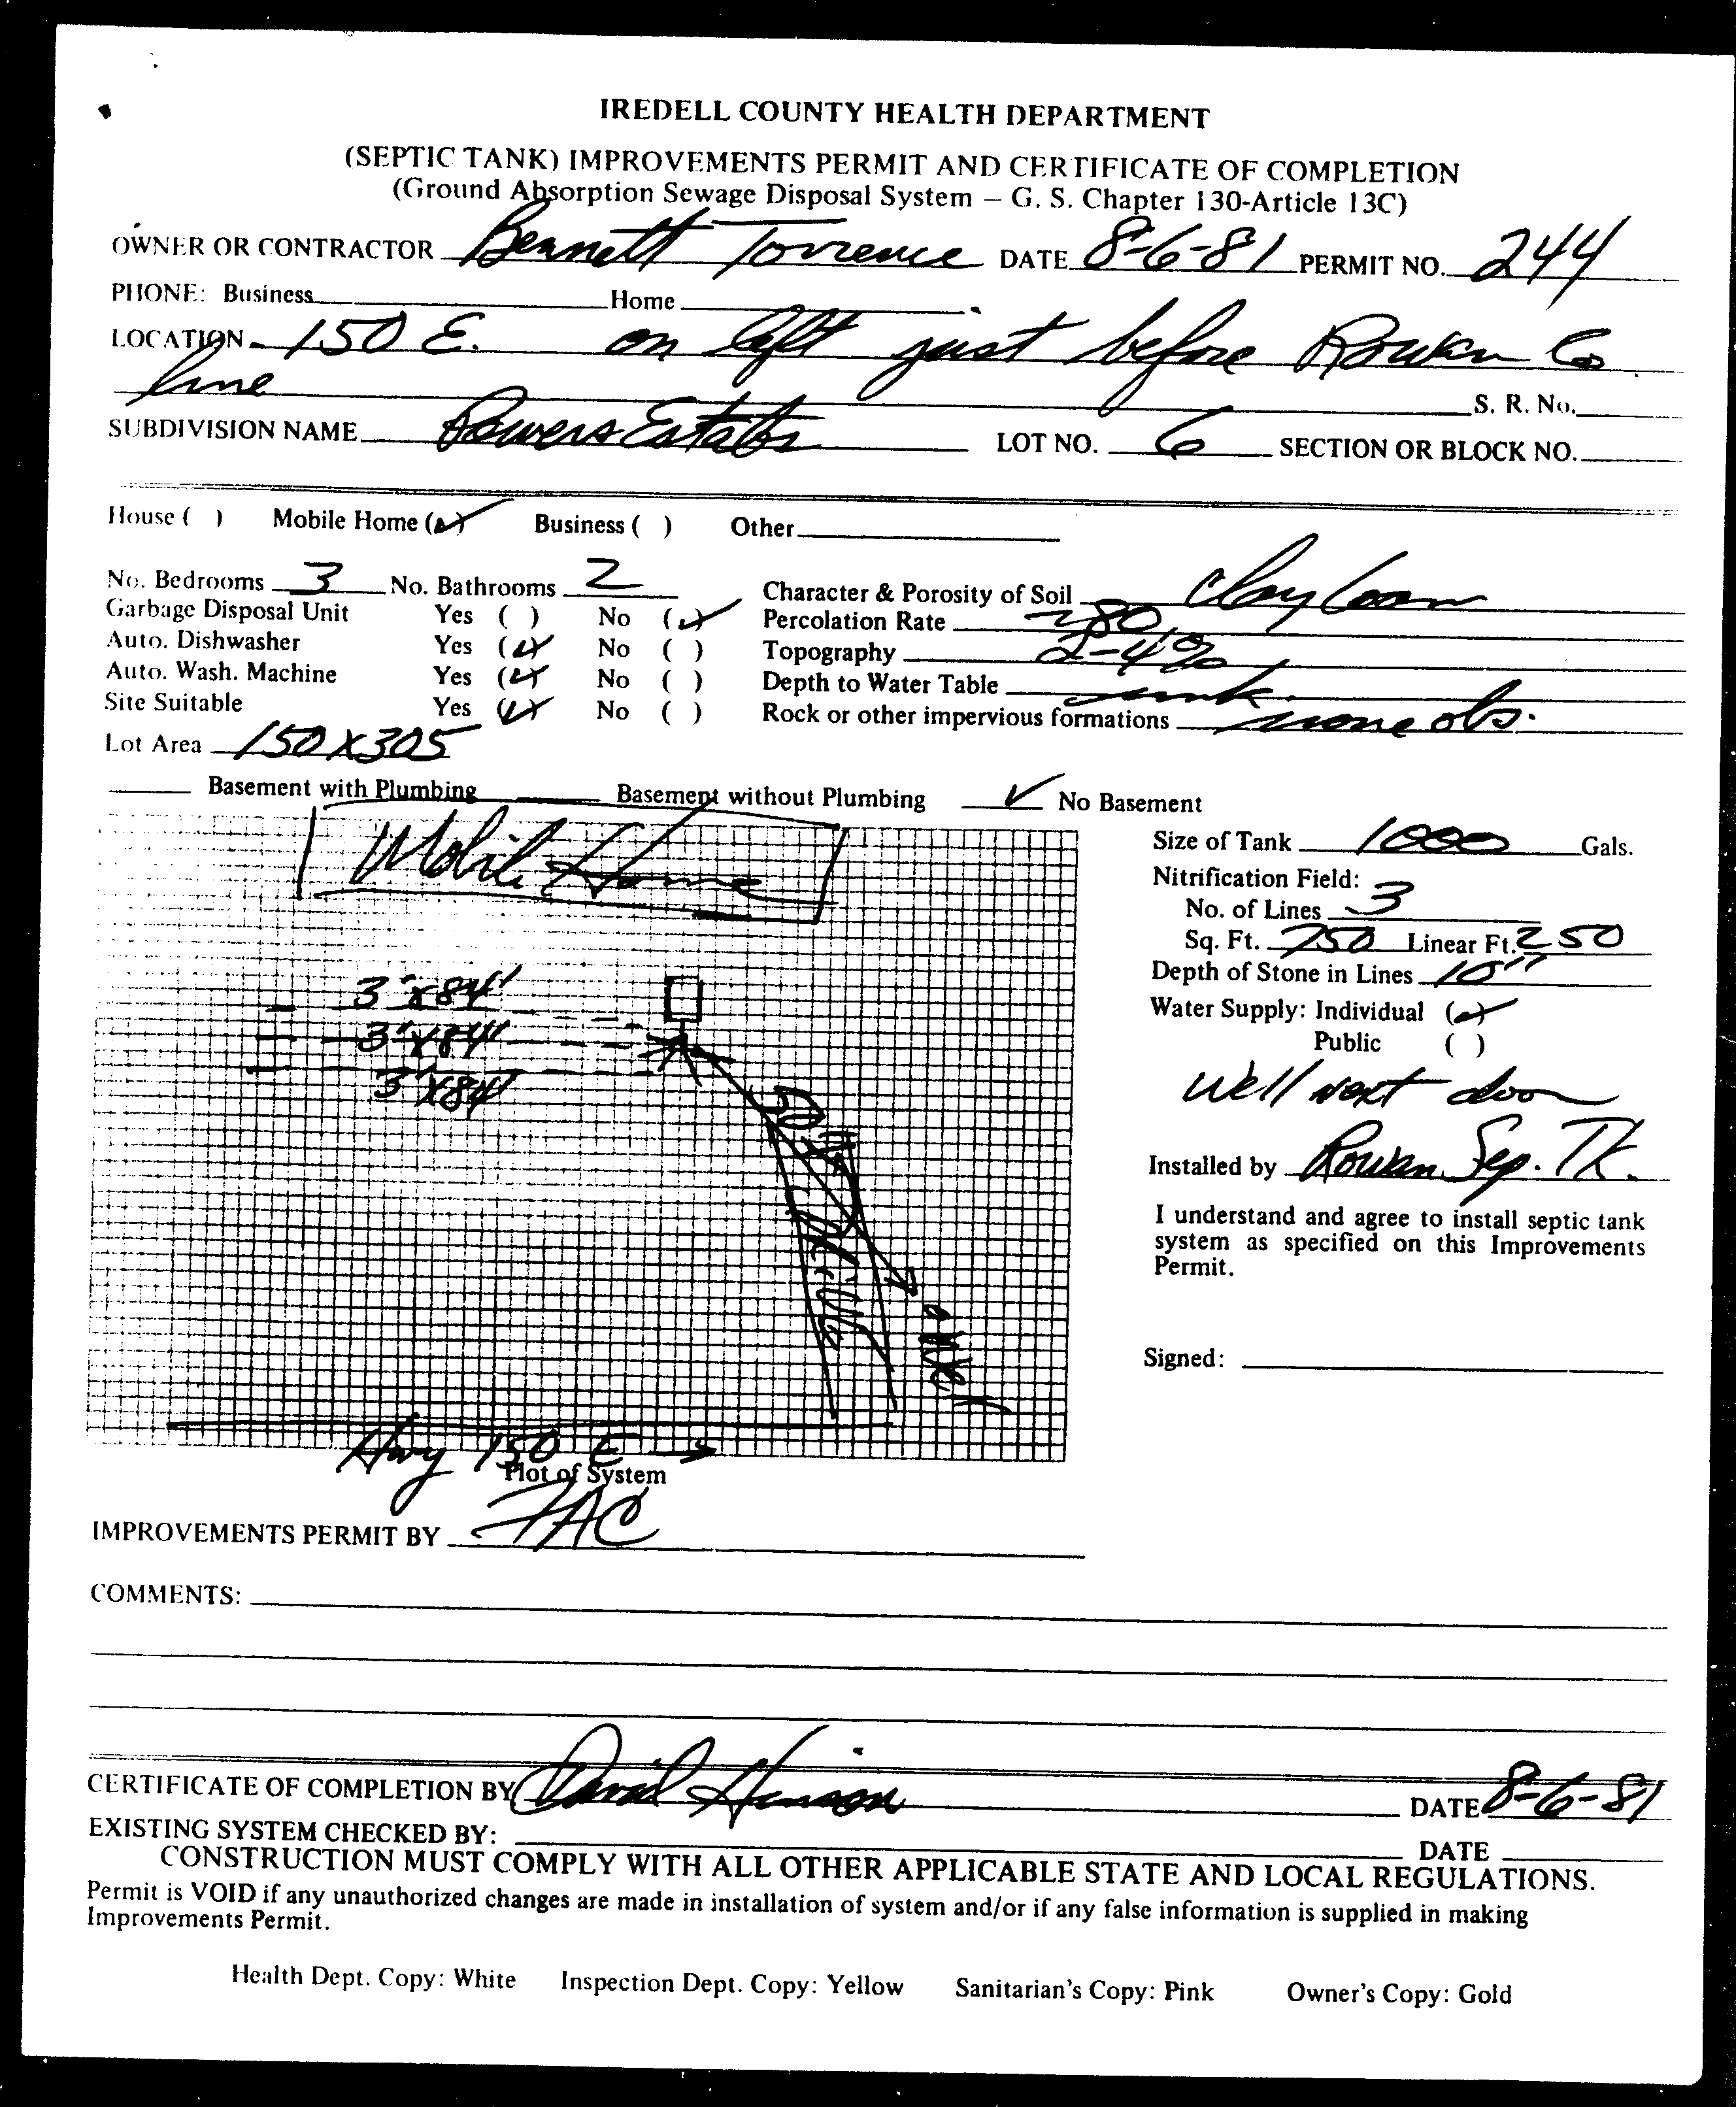 IREDELL COUNTY HEALTH DEPARTMENT
(SEPTIC TANK) IMPROVEMENTS PERMIT AND CERTIFICATE OF COMPLETION
(Ground Absorption Sewage Disposal System – G. S. Chapter 130-Article 13C)
OWNER OR CONTRACTOR Bennett Torrence DATE 8-6-81 PERMIT NO. 244
PHONE: Business Home
LOCATION 150 E. on left just before Rowan Co
line S. R. No.
SUBDIVISION NAME Powers Estates LOT NO. 6 SECTION OR BLOCK NO.
House ( ) Mobile Home (✓) Business ( ) Other
No. Bedrooms 3 No. Bathrooms 2 Character & Porosity of Soil Clay Loam
Garbage Disposal Unit Yes ( ) No (✓) Percolation Rate 280
Auto. Dishwasher Yes (✓) No ( ) Topography 2-4%
Auto. Wash. Machine Yes (✓) No ( ) Depth to Water Table unk.
Site Suitable Yes (✓) No ( ) Rock or other impervious formations none obs.
Lot Area 150 X 305
Basement with Plumbing Basement without Plumbing ✓ No Basement
Mobile Home
3' x 84'
3' x 84'
3' x 84'
Hwy 150 E →
Plot of System
Size of Tank 1000 Gals.
Nitrification Field:
No. of Lines 3
Sq. Ft. 750 Linear Ft. 250
Depth of Stone in Lines 10"
Water Supply: Individual (✓)
Public ( )
Well next door
Installed by Rowan Sep. TK.
I understand and agree to install septic tank
system as specified on this Improvements
Permit.
Signed:
IMPROVEMENTS PERMIT BY FAC
COMMENTS:
CERTIFICATE OF COMPLETION BY David Hinson DATE 8-6-81
EXISTING SYSTEM CHECKED BY: DATE
CONSTRUCTION MUST COMPLY WITH ALL OTHER APPLICABLE STATE AND LOCAL REGULATIONS.
Permit is VOID if any unauthorized changes are made in installation of system and/or if any false information is supplied in making
Improvements Permit.
Health Dept. Copy: White Inspection Dept. Copy: Yellow Sanitarian's Copy: Pink Owner's Copy: Gold